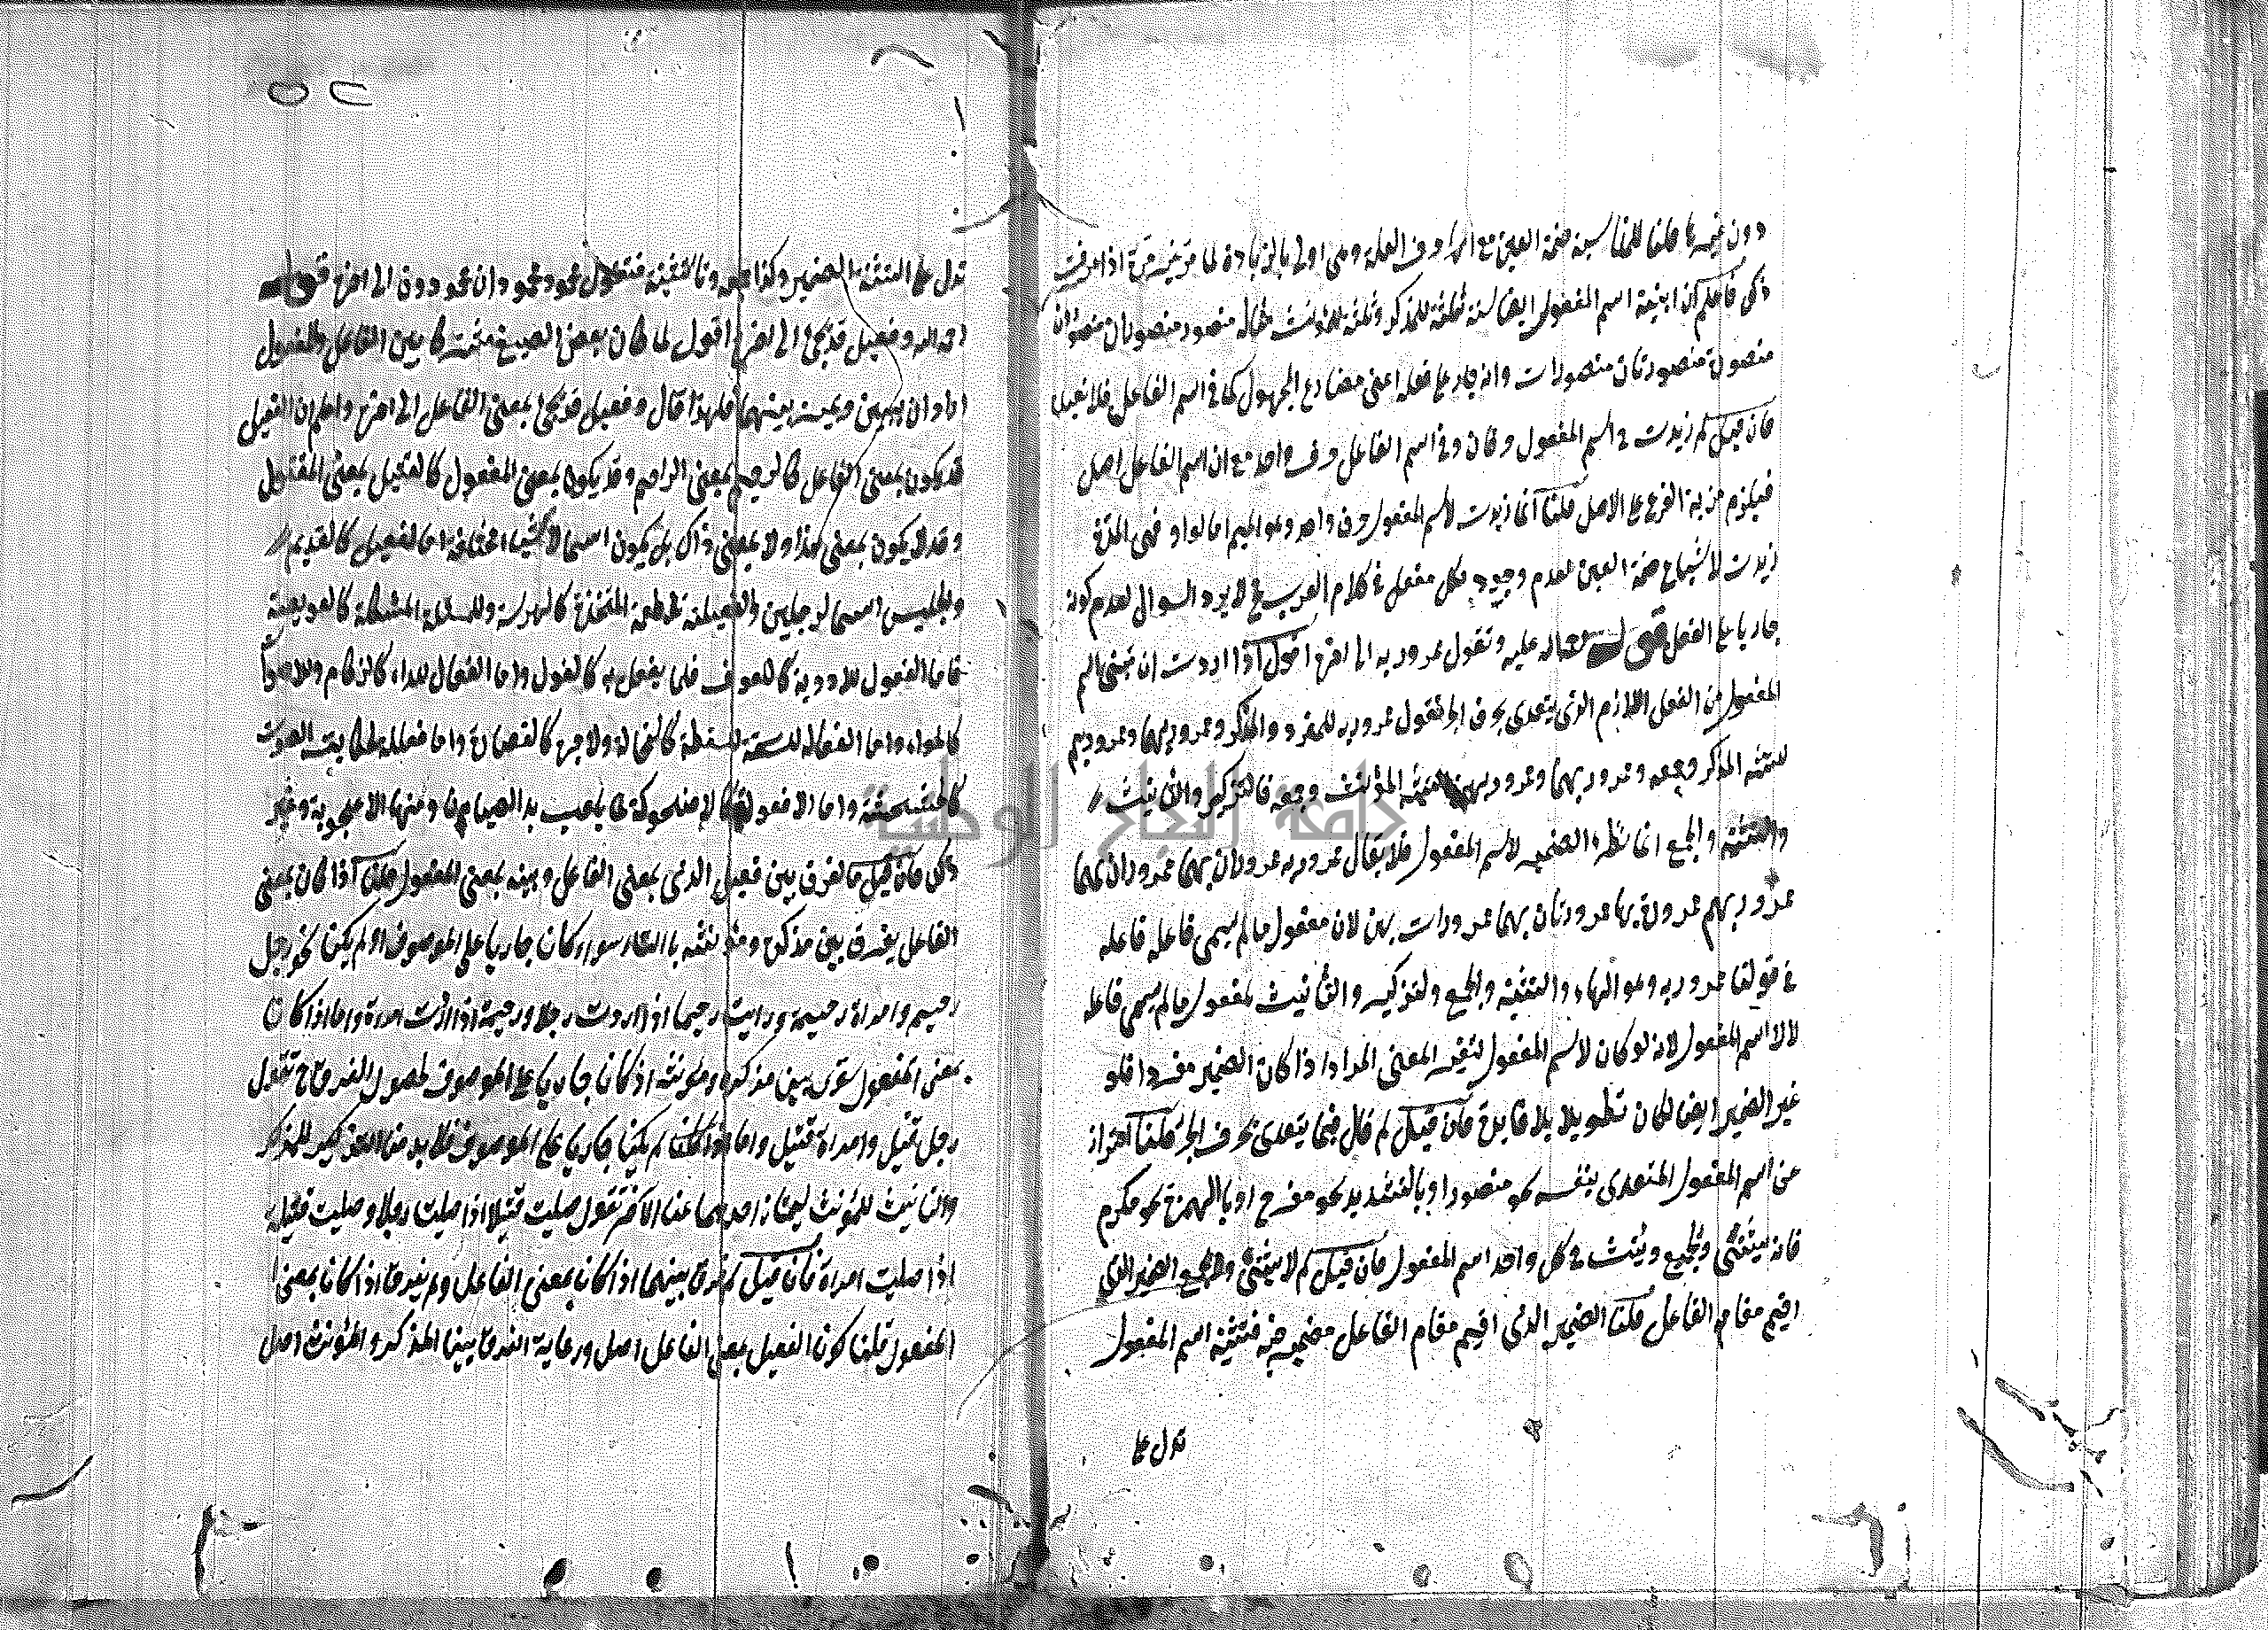 دون غيرها قلنا للمناسبة ضمة العين مع انها حرف العلة وهي اولى بالزيادة لما مر غير مرة اذا عرفت
ذلك فاعلم ان ابنية اسم المفعول ايضا ستة ثلثة للمذكر وثلثة للمؤنث مثاله منصور منصوران منصورون
منصورة منصورتان منصورات وانه جار على فعله اعني مضارع المجهول كما في اسم الفاعل فلا نعيد
فان قيل لم زيدت في اسم المفعول حرفان وفي اسم الفاعل حرف واحد مع ان اسم الفاعل اصل
فيلزم مزية الفرع على الاصل قلنا انما زيدت لاسم المفعول حرف واحد وهو الميم اما الواو فهي المدة
زيدت لاشباع ضمة العين لعدم وجود مفعل في كلام العرب فح لا يرد السوال لعدم كونه
جاريا على الفعل قوله رحمة الله عليه وتقول ممرور به الى اخره اقول اذا اردت ان تبنى اسم
المفعول من الفعل اللازم الذي يتعدى بحرف الجر تقول ممرور به للمفرد المذكر وممرور بهما وممرور بهم
لتثنية المذكر وجمعه وممرور بهما وممرور بهن لتثنية المؤنث وجمعه فالتذكير والتأنيث
والتثنية والجمع انما تظهر الضمير لاسم المفعول فلا يقال ممرور به ممروران بهما ممروران بهما
ممرور بهم ممرورة بها ممرورتان بهما ممرورات بهن لان مفعول ما لم يسمى فاعله فاعله
في قولنا ممرور به وهو الهاء والتثنية والجمع والتذكير والتأنيث لمفعول ما لم يسمى فاعله
لا لاسم المفعول لانه لو كان لاسم المفعول لتغير المعنى المراد اذا كان الضمير مفردا فلو
غير الضمير ايضا لكان تطويلا بلا فايدة فان قيل لم قال فيما يتعدى بحرف الجر قلنا احتراز
من اسم المفعول المتعدى بنفسه نحو منصور او بالتشديد نحو مفرح او بالهمزة نحو مكرم
فانه يثنى ويجمع ويؤنث في كل واحد اسم المفعول فان قيل لم لا يثنى ولا يجمع الضمير الذي
اقيم مقام الفاعل قلنا الضمير الذي اقيم مقام الفاعل مضمر فيه فتثنية اسم المفعول
تدل على
تدل على التثنية الضمير وكذا جمعه وتأنيثه فتقول محمود محمودان محمودون الى اخره قوله
رحمه الله وفعيل قد يجئ الى اخره اقول لما كان بعض الصيغ مشتركا بين الفاعل والمفعول
اراد ان يبين ويميز بينهما فلهذا قال وفعيل قد يجئ بمعنى الفاعل الى اخره واعلم ان الفعيل
قد يكون بمعنى الفاعل كالرحيم بمعنى الراحم وقد يكون بمعنى المفعول كالقتيل بمعنى المقتول
وقد لا يكون بمعنى هذا ولا بمعنى ذاك بل يكون اسما لاشياء مختلفة اما الفعيل كالقديم
والجليس اسمى لرجلين والفعيلة لطعمة المتخذة كالهريسة وللمسئلة المشكلة كالعويصة
فاما الفعول للادوية كاللعوق فلما يفعل به كالغول واما الفعال للداء كالزكام وللاصوات
كالعواء واما الفعالة للسقطة كالنخالة ولاجرة كالقصارة واما فعللة لحكاية الصوت
كالخشخشة واما الافعولة كالاضحوكة لما يلعب به الصبيان ومنها الاعجوبة وغير
ذلك فان قيل ما الفرق بين فعيل الذي بمعنى الفاعل وبينه بمعنى المفعول قلنا اذا كان بمعنى
الفاعل يفرق بين مذكره ومؤنثه بالتاء سواء كان جاريا على الموصوف او لم يكن نحو رجل
رحيم وامراة رحيمة ورايت رحيما اذا اردت رجلا ورحيمة اذا اردت امراة واما اذا كان
بمعنى المفعول سوى بين مذكره ومؤنثه اذ كان جاريا على الموصوف لحصول الفرق ح تقول
رجل قتيل وامراة قتيل واما اذا لم يكن جاريا على الموصوف فلا بد من التذكير للمذكر
والتأنيث للمؤنث ليمتاز احدهما عن الاخر تقول صليت قتيلا اذا صليت رجلا وصليت قتيلة
اذا صليت امراة فان قيل لم فرق بينهما اذا كان بمعنى الفاعل ولم يفرق اذا كان بمعنى
المفعول قلنا كون الفعيل بمعنى الفاعل اصل ورعاية الفرق بين المذكر والمؤنث اصل